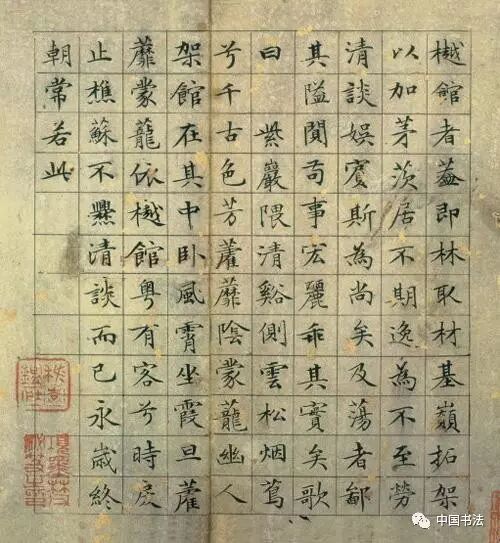 樾館者蓋即林取材基巔拓架
以加茅茨居不期逸為不至勞
清談娛賓斯為尚矣及蕩者鄙
其隘闃苟事宏麗乖其實矣歌
曰 紫巖隈清谿側雲松烟蔦
兮千古色芳藿蘼陰蒙蘢幽人
架館在其中臥風霄坐霞旦藿
蘼蒙蘢依樾館粵有客兮時戾
止樵蘇不爨清談而已永歲終
朝常若此
中国书法